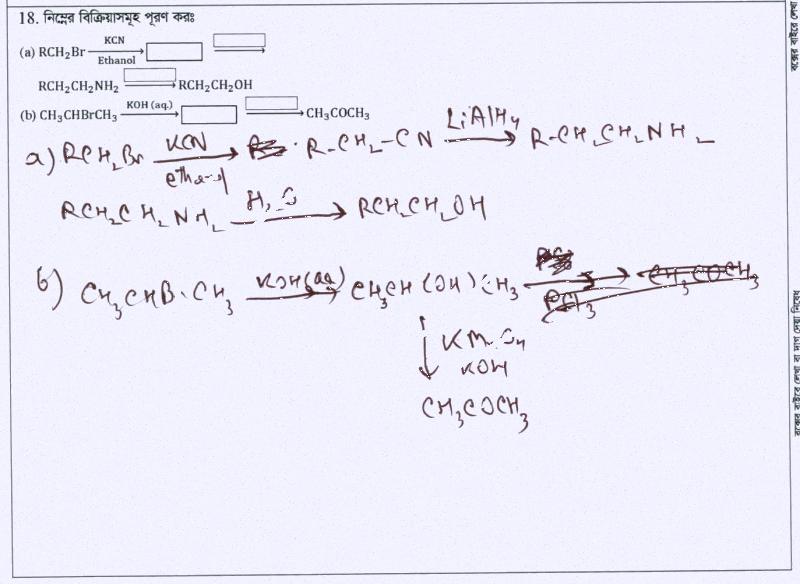 18. নিম্নের বিক্রিয়াসমূহ পূরণ করঃ
(a) RCH₂Br KCN Ethanol
RCH₂CH₂NH₂ RCH₂CH₂OH
(b) CH₃CHBrCH₃ KOH (aq.) CH₃COCH₃
a) RCH₂Br KCN ethanol R-CH₂-CN LiAlH₄ R-CH₂CH₂NH₂
RCH₂CH₂NH₂ RCH₂CH₂OH
b) CH₃CHBrCH₃ KOH(aq) CH₃CH(OH)CH₃ PCl₃ CH₃COCH₃
KMnO₄
KOH
CH₃COCH₃
বক্সের বাইরে লেখা
বক্সের বাইরে লেখা বা দাগ দেয়া নিষেধ